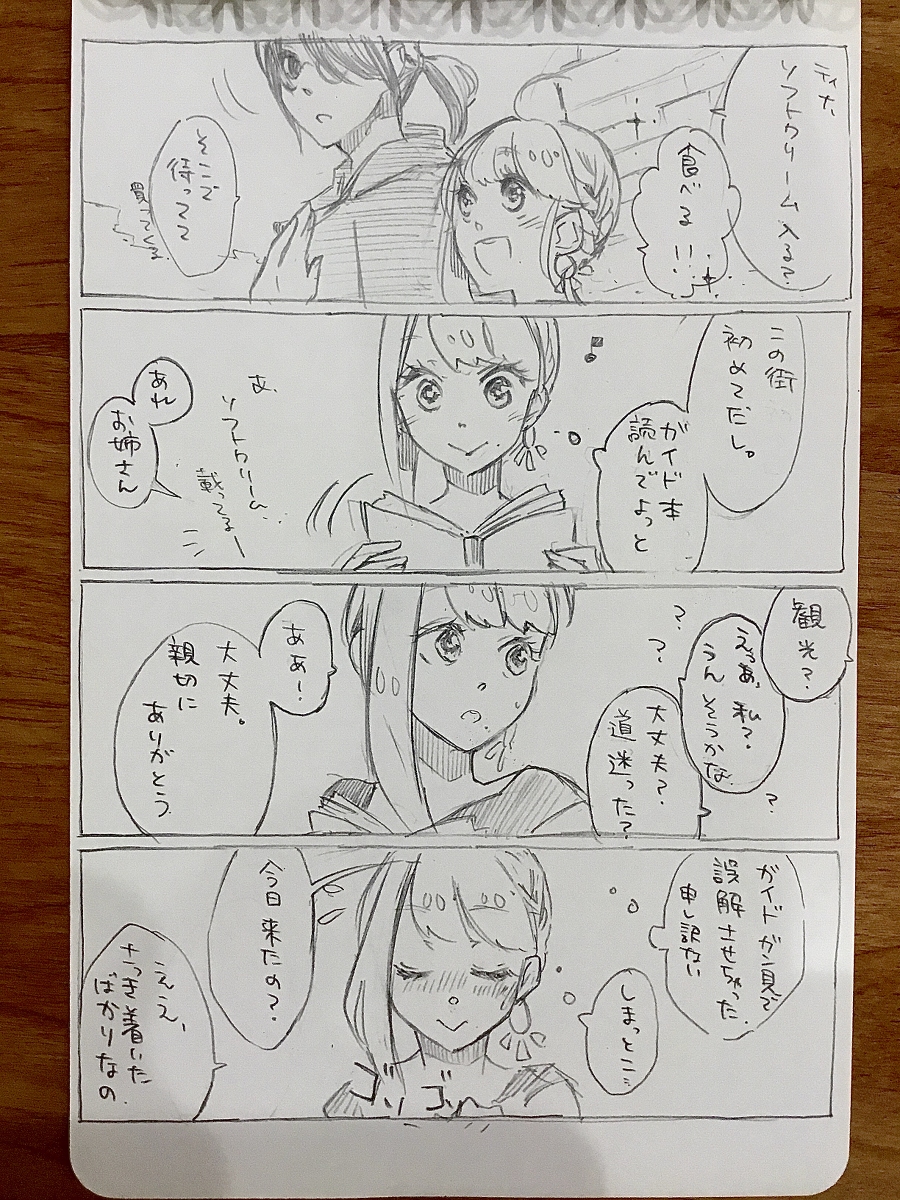 ティナ、
ソフトクリーム入る?
食べる!!
そこで
待ってて
買ってくる
この街
初めてだし。
ガイド本
読んでよっと
あ、
ソフトクリーム、
載ってるー
あれ
お姉さん
観光?
えっあ、私?
うんそうかな
?
?
?
大丈夫?
道迷った?
ああ!
大丈夫。
親切に
ありがとう
ガイドガン見で
誤解させちゃった
申し訳ない
しまっとこ…
ゴソゴソ
今日来たの?
ええ、
さっき着いた
ばかりなの。